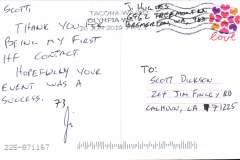 SCOTT,
THANK YOU FOR
BEING MY FIRST
HF CONTACT.
HOPEFULLY YOUR
EVENT WAS A
SUCCESS.
73,
TACOMA WA
OLYMPIA WA
2019
BREMERTON, WA
love
TO:
SCOTT DICKSON
JIM FINLEY RD
CALHOUN, LA 71225
225-871167